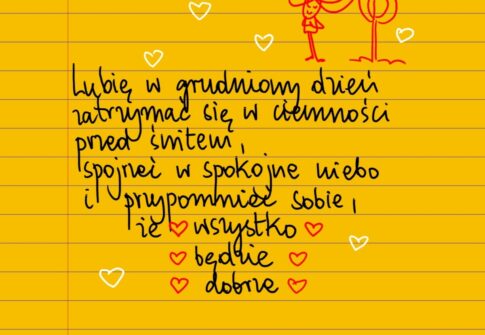 Lubię w grudniowy dzień
zatrzymać się w ciemności
przed świtem,
spojrzeć w spokojne niebo
i przypomnieć sobie,
że wszystko
będzie
dobrze